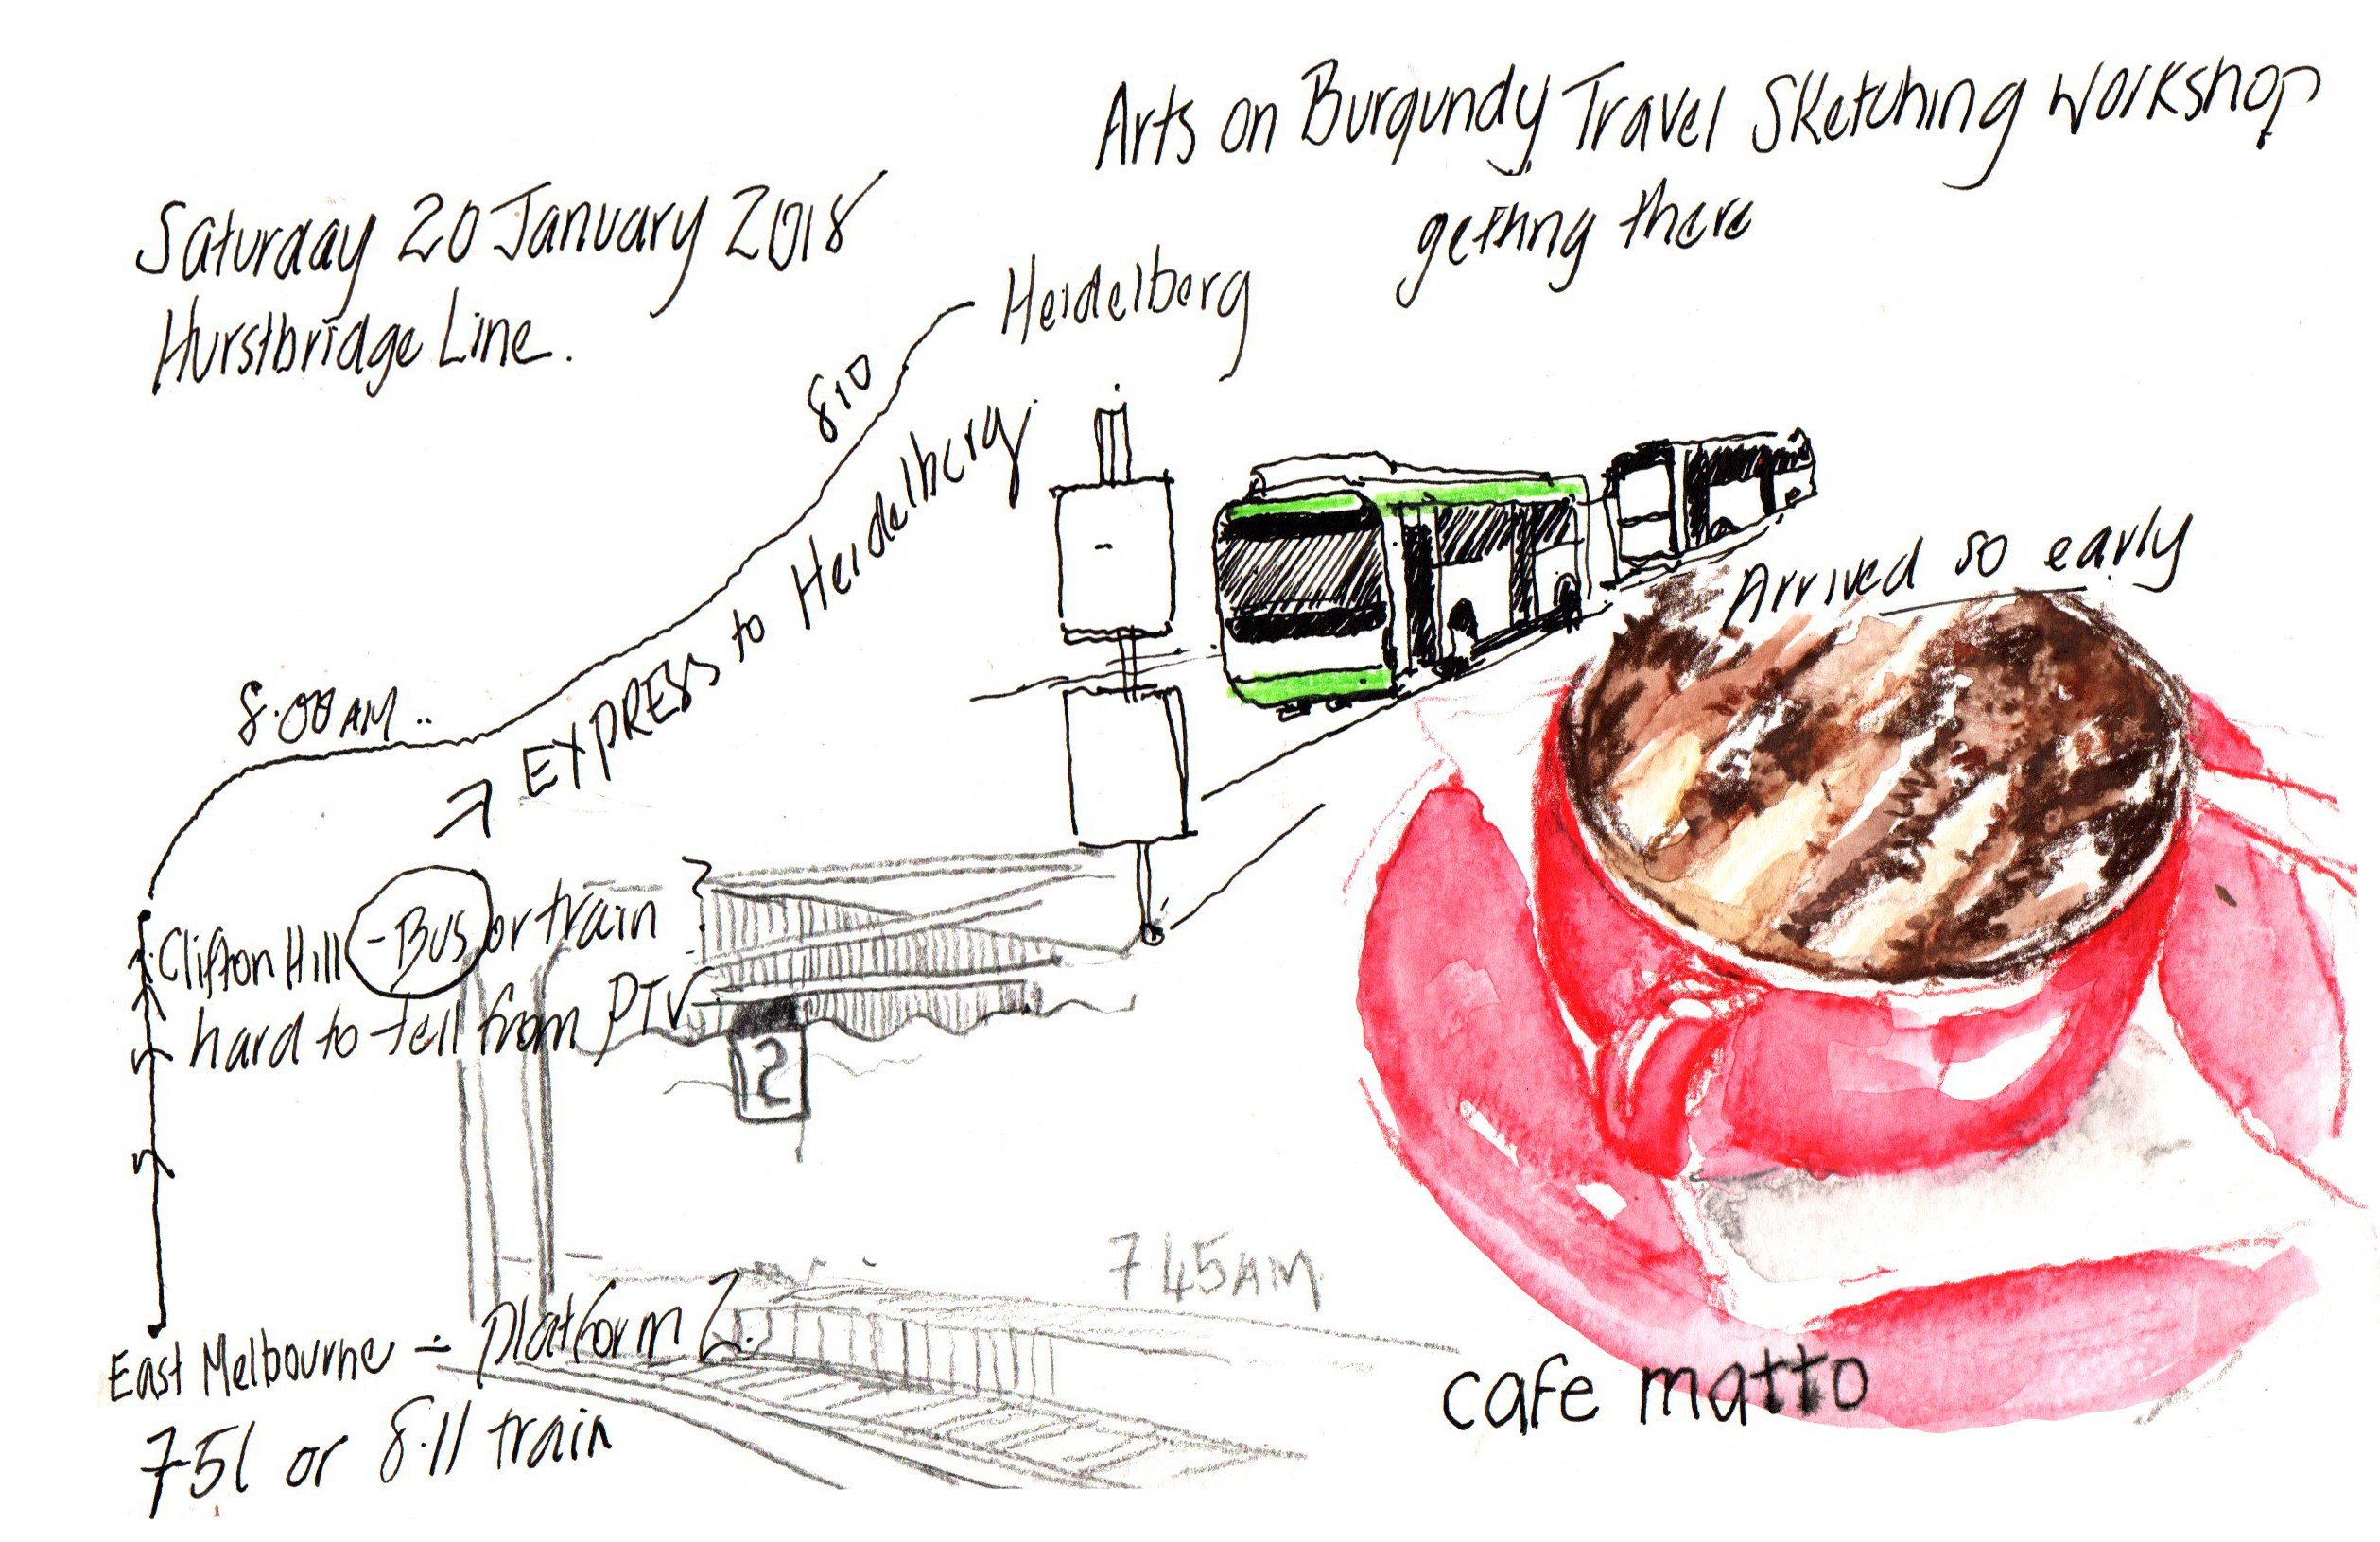 Arts on Burgundy Travel Sketching Workshop
getting there
Saturday 20 January 2018
Hurstbridge Line.
Heidelberg
8.10
EXPRESS to Heidelberg
8.00 AM..
Arrived so early
Clifton Hill - Bus or train
hard to tell from PTV
2
7 45 AM
East Melbourne - platform 2.
7.51 or 8.11 train
cafe matto